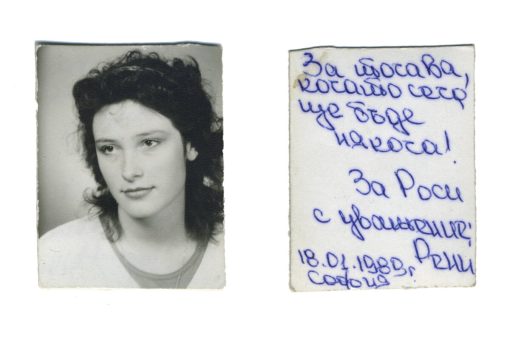 За тогава,
когато сега
ще бъде
някога!
За Роси
с уважение:
Рени
18.01.1989г
София